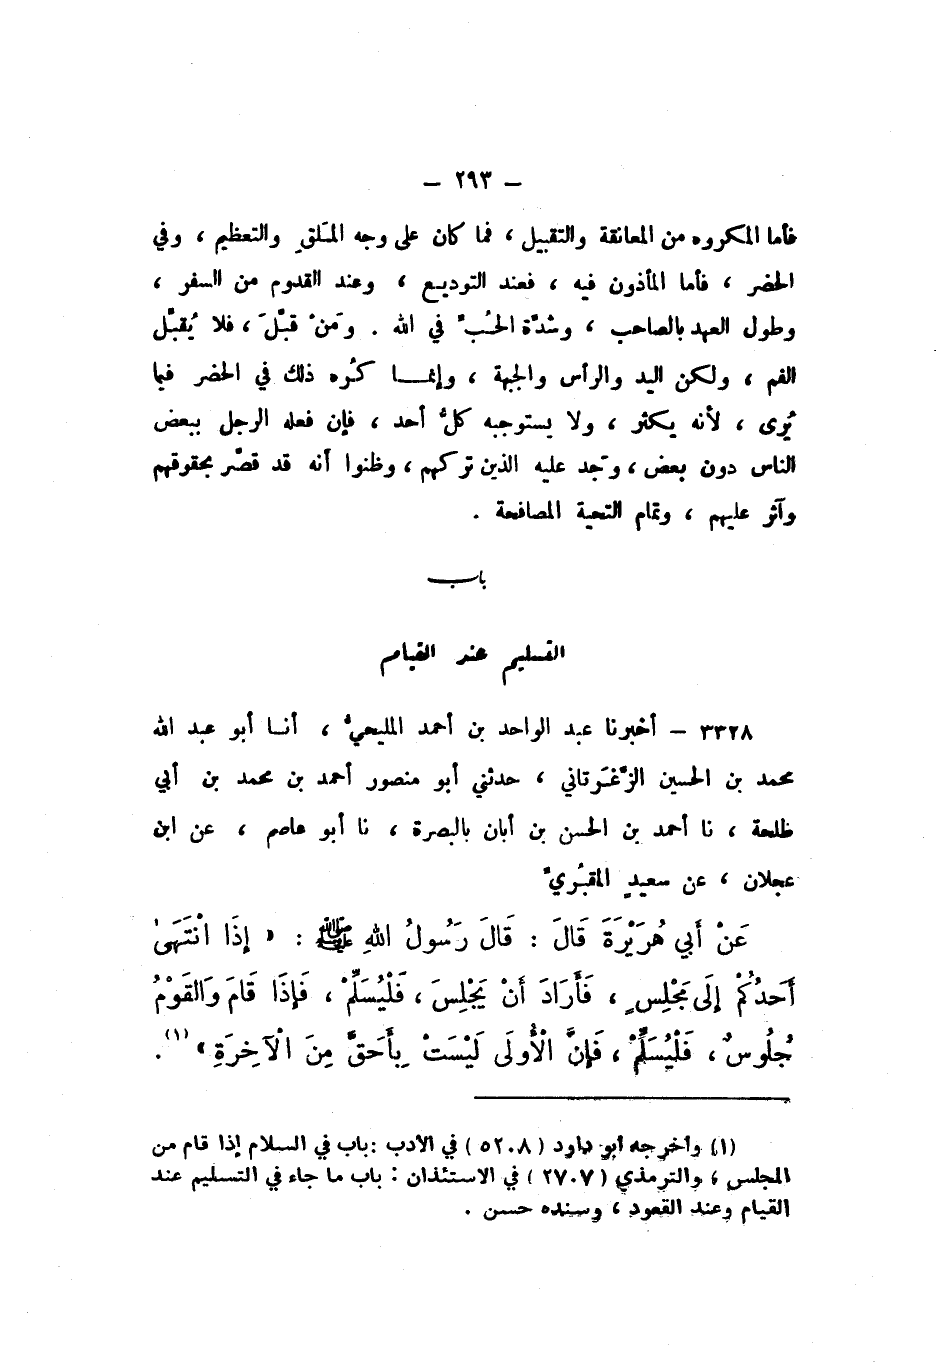 – ٢٩٣ –
فأما المكروه من المعانقة والتقبيل ، فما كان على وجه المَلَقِ والتعظيم ، وفي
الحضر ، فأما المأذون فيه ، فعند التوديع ، وعند القدوم من السفر ،
وطول العهد بالصاحب ، وشدَّة الحُبِّ في الله . ومَنْ قبَّلَ ، فلا يُقبِّل
الفم ، ولكن اليد والرأس والجبهة ، وإنمـــا كُره ذلك في الحضر فيما
يُرى ، لأنه يكثر ، ولا يستوجبه كلُّ أحد ، فإن فعله الرجل ببعض
الناس دون بعض ، وَجد عليه الذين تركهم ، وظنوا أنه قد قصَّر بحقوقهم
وآثر عليهم ، وتمام التحية المصافحة .
باب
التسليم عند القيام
٣٣٢٨ – أخبرنا عبد الواحد بن أحمد المليحيُّ ، أنــا أبو عبد الله
محمد بن الحسين الزَّغَرتاني ، حدثني أبو منصور أحمد بن محمد بن أبي
طلحة ، نا أحمد بن الحسن بن أبان بالبصرة ، نا أبو عاصم ، عن ابن
عجلان ، عن سعيدٍ المقبُريِّ
عَنْ أَبِي هُرَيْرَةَ قَالَ : قَالَ رَسُولُ اللهِ ﷺ : « إِذَا انْتَهَىٰ
أَحَدُكُمْ إِلَى مَجْلِسٍ ، فَأَرَادَ أَنْ يَجْلِسَ ، فَلْيُسَلِّمْ ، فَإِذَا قَامَ وَالقَوْمُ
جُلُوسٌ ، فَلْيُسَلِّمْ ، فَإِنَّ الْأُولَى لَيْسَتْ بِأَحَقَّ مِنَ الْآخِرَةِ » (١) .
(١) وأخرجه أبو داود ( ٥٢٠٨ ) في الأدب : باب في السلام إذا قام من
المجلس ، والترمذي ( ٢٧٠٧ ) في الاستئذان : باب ما جاء في التسليم عند
القيام وعند القعود ، وسنده حسن .